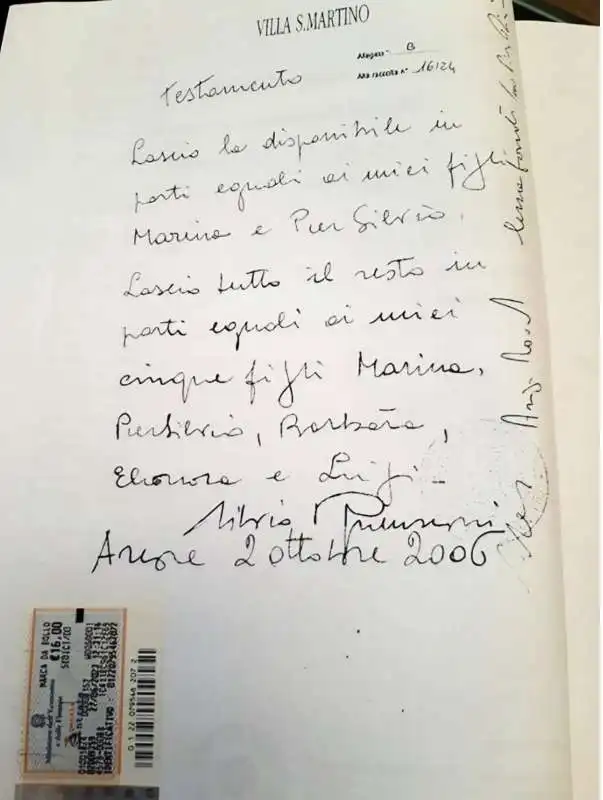 VILLA S.MARTINO
Allegato " B
Alla raccolta n° 16124
Testamento
Lascio la disponibile in
parti eguali ai miei figli
Marina e Pier Silvio.
Lascio tutto il resto in
parti eguali ai miei
cinque figli Marina,
PierSilvio, Barbara,
Eleonora e Luigi -
Silvio Berlusconi
Arcore 2 ottobre 2006
Ministero dell'Economia
e delle Finanze
MARCA DA BOLLO
€16,00
SEDICI/00
0 1 22 079546 207 2